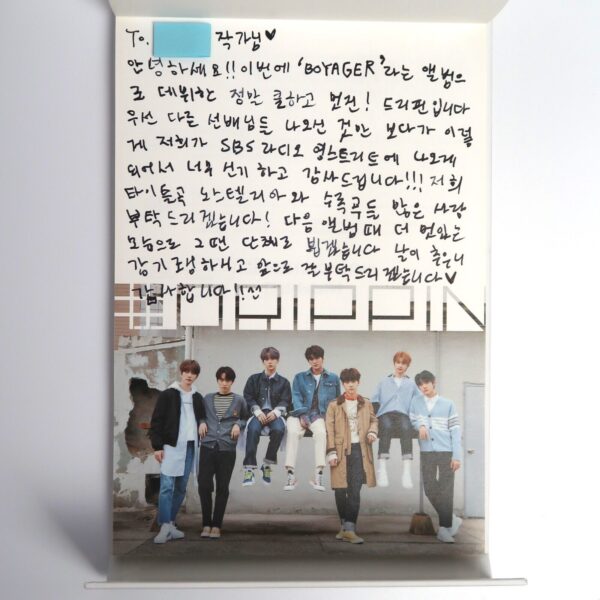 To. 작가님♥
안녕하세요!! 이번에 'BOYAGER'라는 앨범으
로 데뷔한 정말 쿨하고 멋진! 드리핀입니다
우선 다른 선배님들 나오신 것만 보다가 이렇
게 저희가 SBS 라디오 영스트리트에 나오게
되어서 너무 신기하고 감사드립니다!!! 저희
타이틀곡 노스텔리아와 수록곡들 많은 사랑
부탁드리겠습니다! 다음 앨범 때 더 멋있는
모습으로 그땐 단체로 뵙겠습니다 날이 추우니
감기 조심하시고 앞으로 잘 부탁드리겠습니다♥
감사합니다!!
DRIPPIN